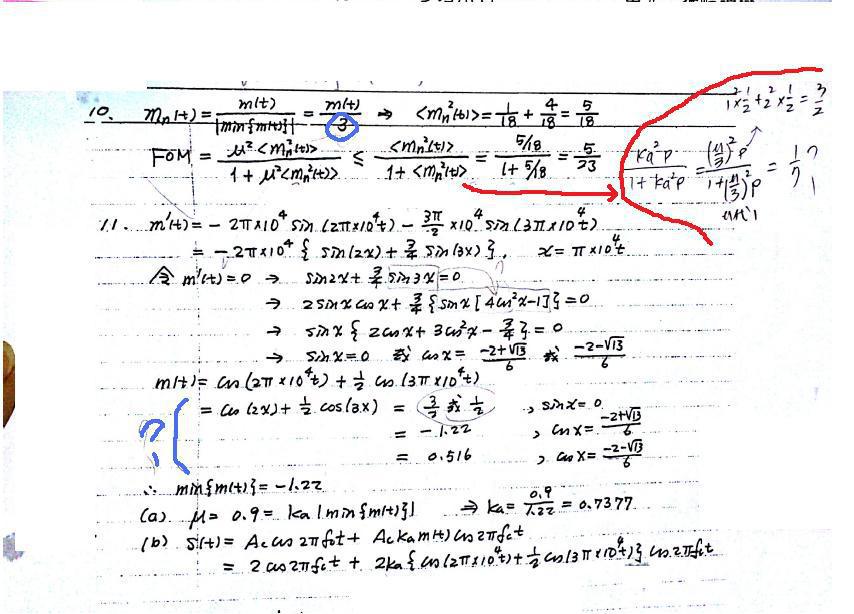 10. mₙ(t) = m(t)/|min{m(t)}| = m(t)/3 ⇒ <mₙ²(t)> = 1/18 + 4/18 = 5/18
FOM = μ²<mₙ²(t)>/(1 + μ²<mₙ²(t)>) ≤ <mₙ²(t)>/(1 + <mₙ²(t)>) = (5/18)/(1 + 5/18) = 5/23
1²×1/2 + 2²×1/2 = 5/2
ka²P/(1 + ka²P) = (μ/3)²P/(1 + (μ/3)²P) = 1/7 ?
11. m'(t) = - 2π×10⁴ sin(2π×10⁴t) - 3π/2 ×10⁴ sin(3π×10⁴t)
= - 2π×10⁴ { sin(2x) + 3/4 sin(3x) }, x = π×10⁴t
令 m'(t) = 0 → sin2x + 3/4 sin3x = 0
→ 2 sinx cosx + 3/4 { sinx [4cos²x-1] } = 0
→ sinx { 2cosx + 3cos²x - 3/4 } = 0
→ sinx = 0 或 cosx = (-2+√13)/6 或 (-2-√13)/6
m(t) = cos(2π×10⁴t) + 1/2 cos(3π×10⁴t)
= cos(2x) + 1/2 cos(3x) = 3/2 或 1/2 , sinx = 0
= -1.22 , cosx = (-2+√13)/6
= 0.516 , cosx = (-2-√13)/6
?
∴ min{m(t)} = -1.22
(a) μ = 0.9 = ka |min{m(t)}| ⇒ ka = 0.9/1.22 = 0.7377
(b) s(t) = Ac cos 2πfct + Ac ka m(t) cos 2πfct
= 2 cos 2πfct + 2ka { cos(2π×10⁴t) + 1/2 cos(3π×10⁴t) } cos 2πfct